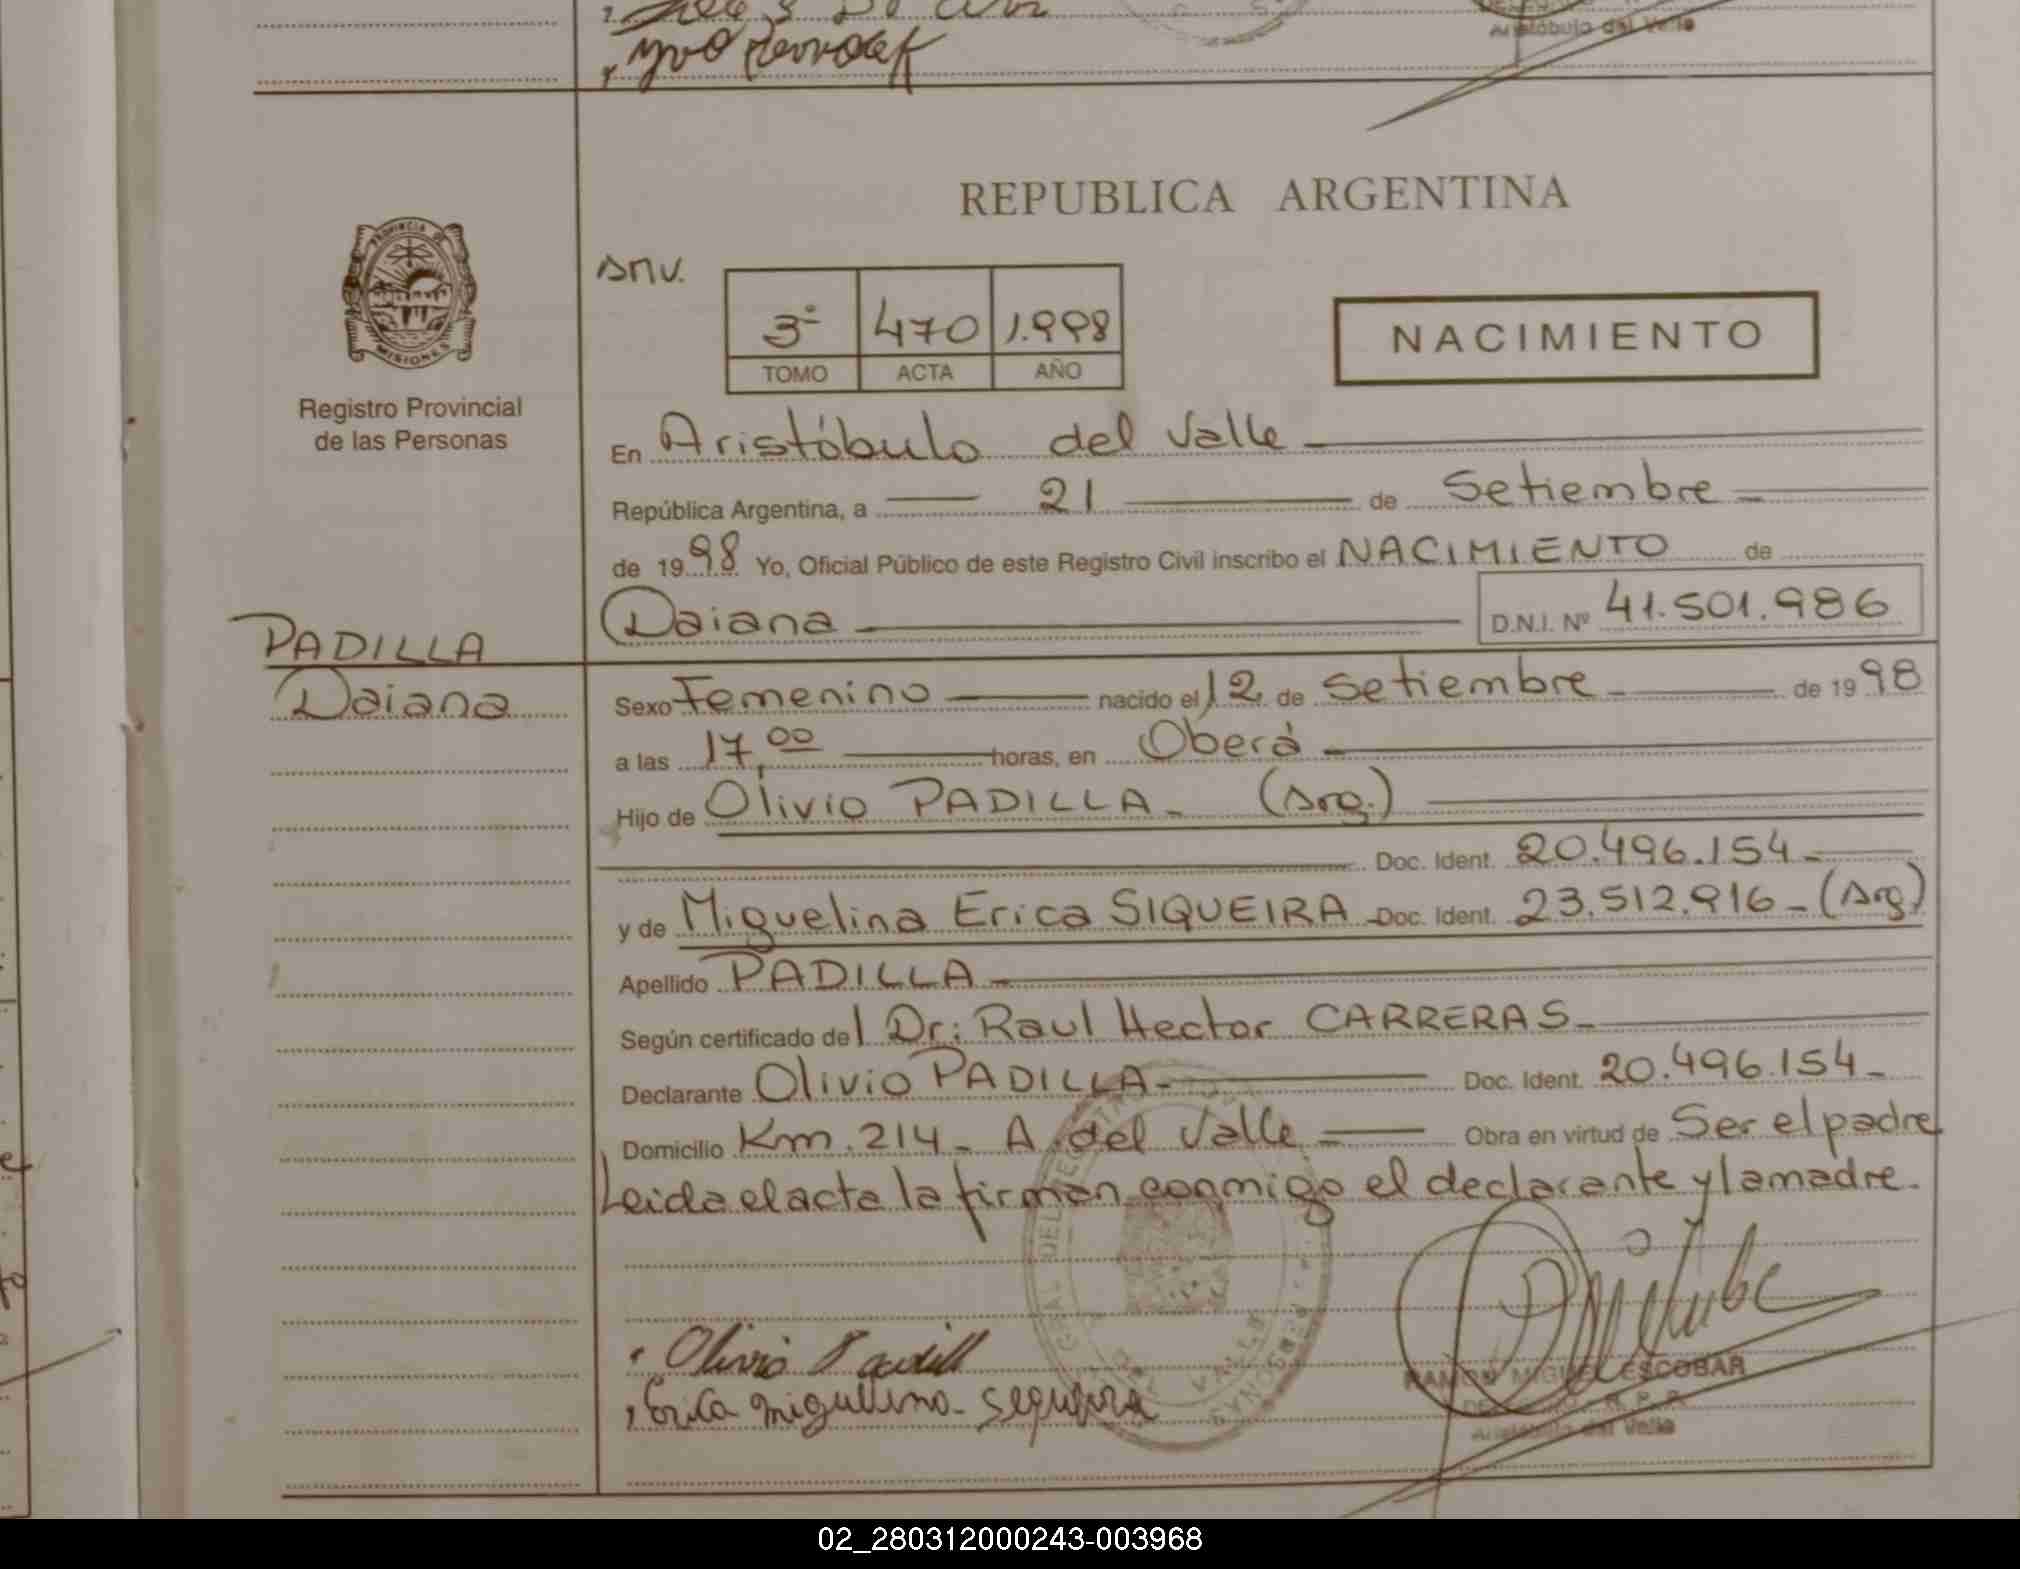 Aristóbulo del Valle
REPUBLICA ARGENTINA
PROVINCIA DE
MISIONES
Registro Provincial
de las Personas
3º 470 1.998
TOMO ACTA AÑO
NACIMIENTO
En Aristóbulo del Valle
República Argentina, a 21 de Setiembre
de 1998 Yo, Oficial Público de este Registro Civil inscribo el NACIMIENTO de
Daiana D.N.I. Nº 41.501.986
PADILLA
Daiana
Sexo Femenino nacido el 12 de Setiembre de 1998
a las 17,00 horas, en Oberá
Hijo de Olivio PADILLA - (Arg.)
Doc. Ident. 20.496.154-
y de Miguelina Erica SIQUEIRA - Doc. Ident. 23.512.916 - (Arg)
Apellido PADILLA -
Según certificado del Dr: Raul Hector CARRERAS -
Declarante Olivio PADILLA - Doc. Ident. 20.496.154 -
Domicilio Km. 214 - A. del Valle Obra en virtud de Ser el padre
Leida el acta la firman conmigo el declarante y la madre.
Olivio Padill
Erica Miguelina
RAMON MIGUEL ESCOBAR
R. P. P.
Aristóbulo del Valle
02_280312000243-003968